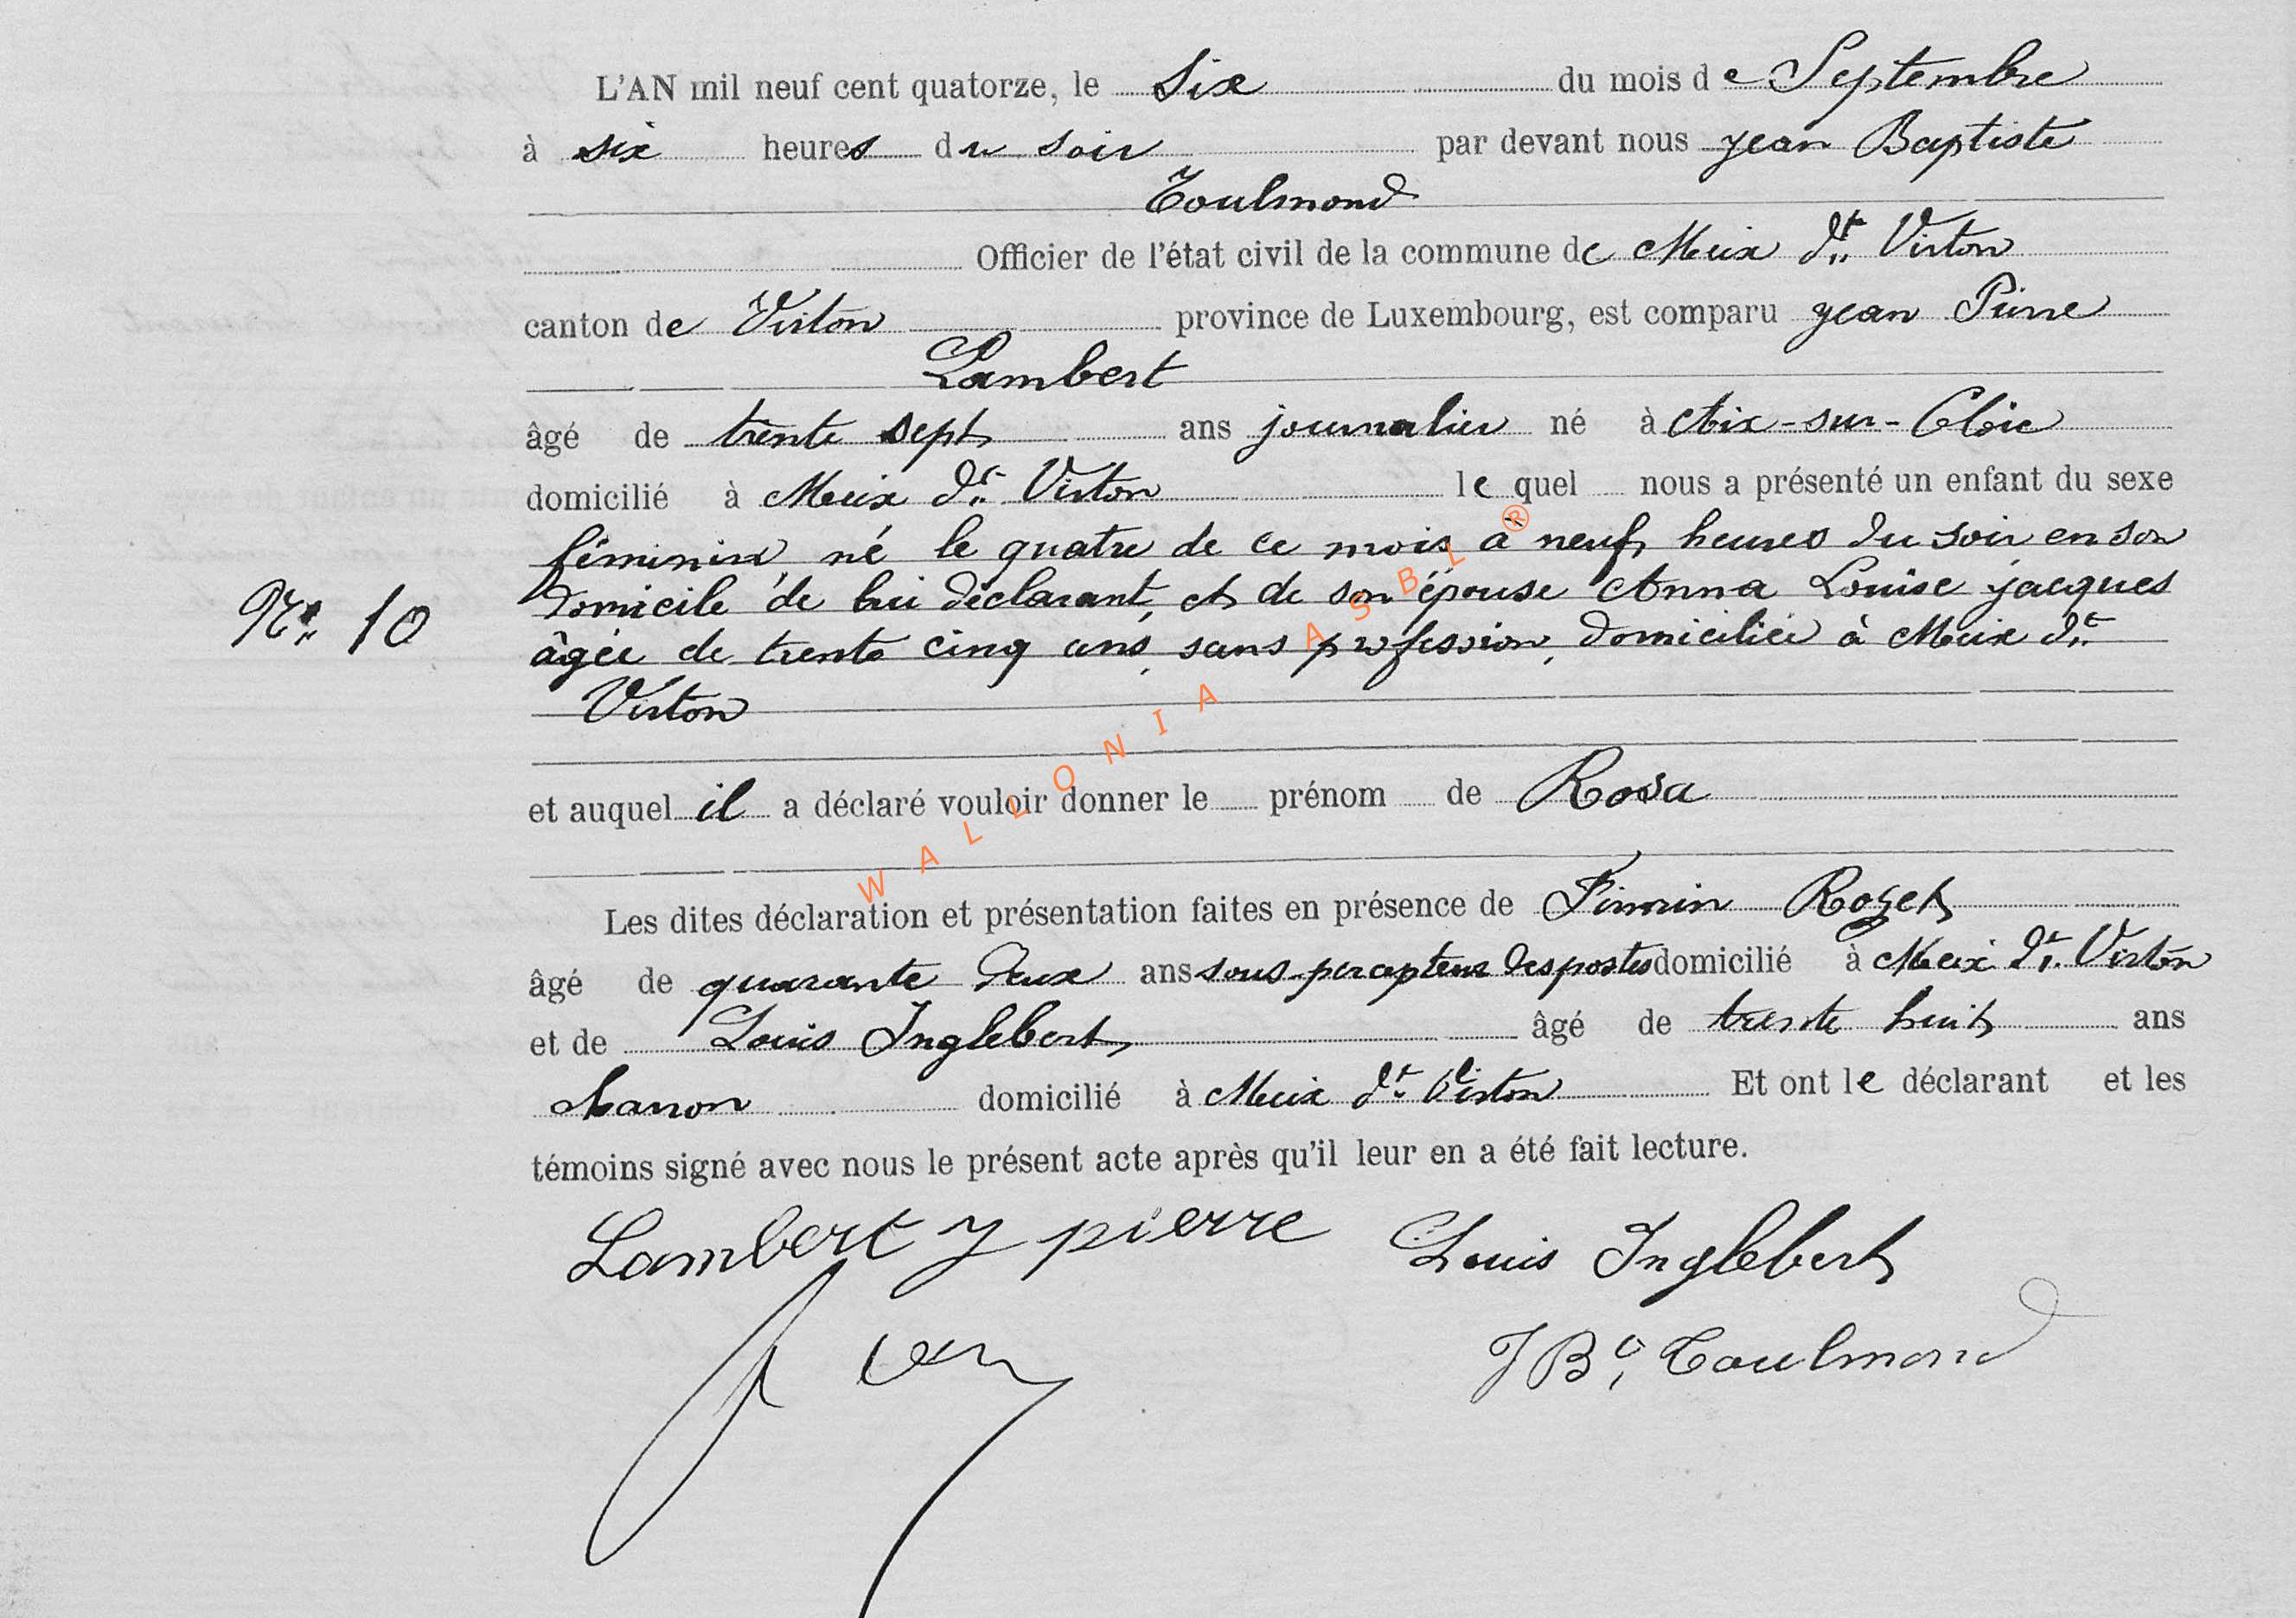 L'AN mil neuf cent quatorze, le six du mois de Septembre
à six heures du soir par devant nous jean Baptiste
Toulmond
Officier de l'état civil de la commune de Meix dt Virton
canton de Virton province de Luxembourg, est comparu jean Pierre
Lambert
âgé de trente sept ans journalier né à Aix-sur-Cloie
domicilié à Meix dt Virton lequel nous a présenté un enfant du sexe
féminin, né le quatre de ce mois à neuf heures du soir en son
N° 10
domicile de lui déclarant, et de son épouse Anna Louise jacques
âgée de trente cinq ans, sans profession, domiciliée à Meix dt
Virton
et auquel il a déclaré vouloir donner le prénom de Rosa
Les dites déclaration et présentation faites en présence de Firmin Rozet
âgé de quarante deux ans sous-percepteur des postes domicilié à Meix dt Virton
et de Louis Inglebert âgé de trente huit ans
charron domicilié à Meix dt Virton Et ont le déclarant et les
témoins signé avec nous le présent acte après qu'il leur en a été fait lecture.
Lambert J pierre Louis Inglebert
JBte Toulmond
WALLONIA ASBL ®